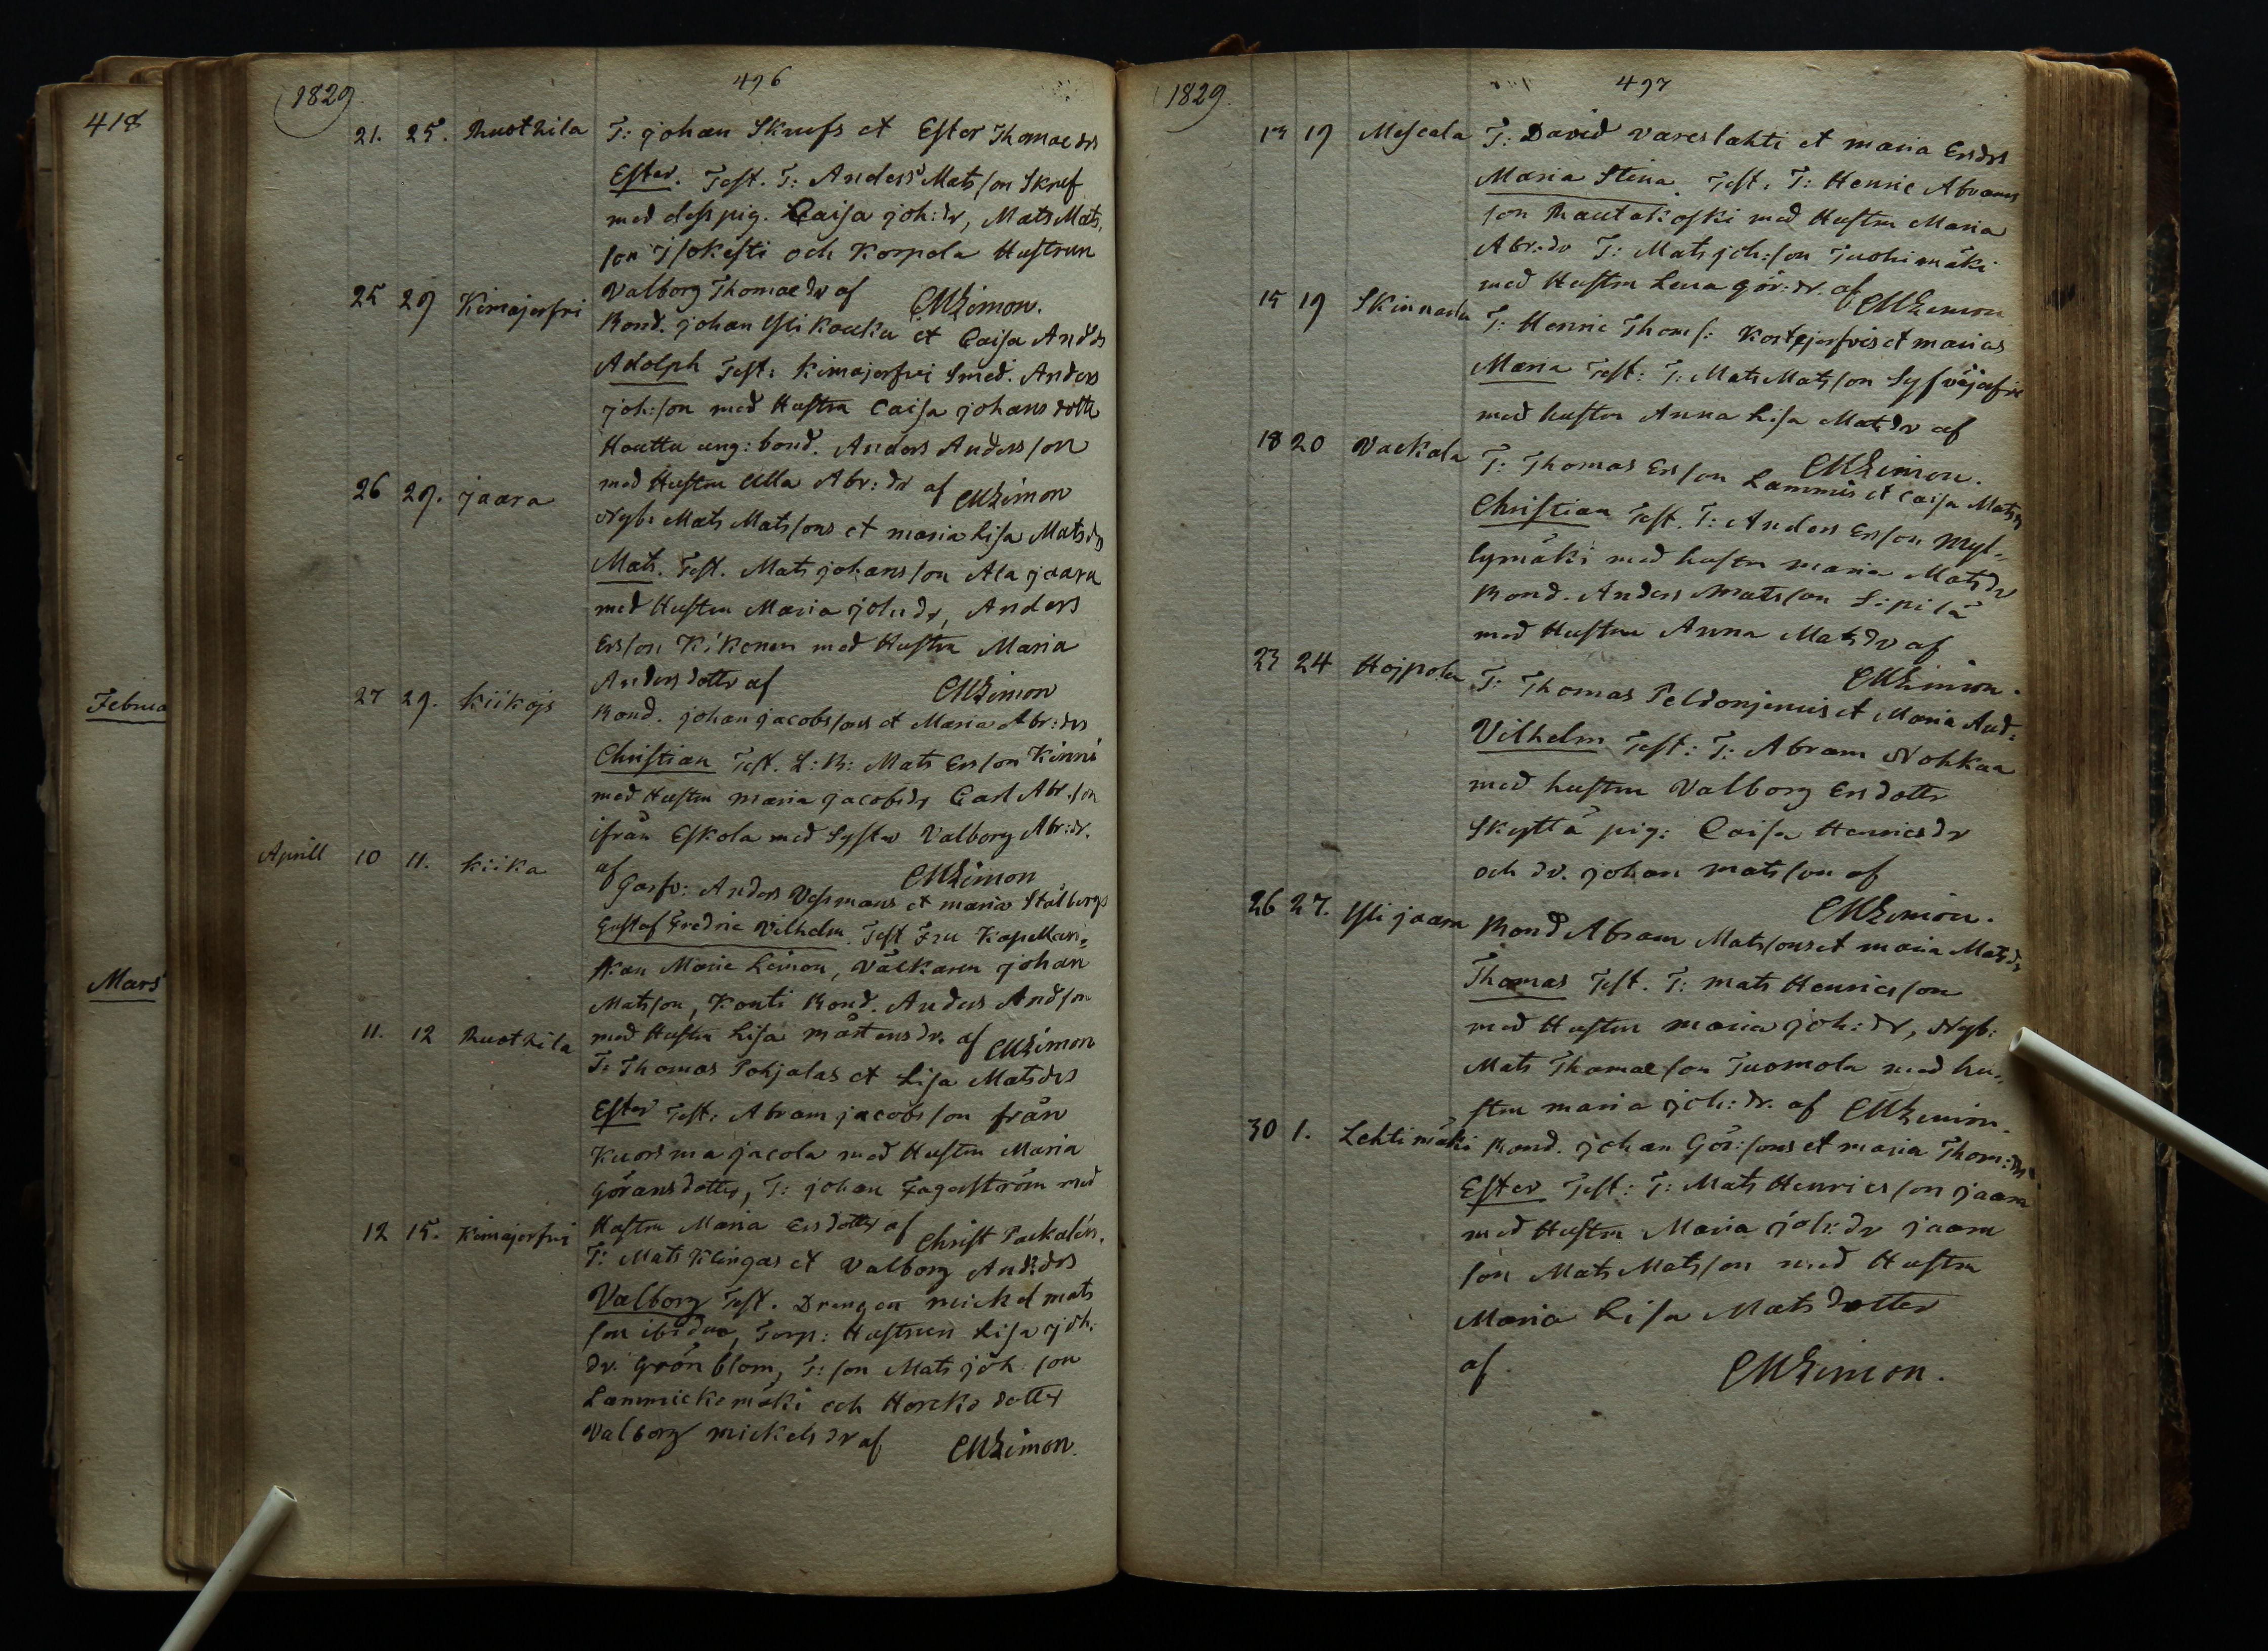 418
Februa
Mars
1829
496
21. 25. Ruothila T: johan Skrefs et Ester Thomaedrs
Ester. Test. T: Anders Mats son Skref
med dess pig. Caisa joh:dr, Mats Mats
son Isokesti och Korpola Hustrun
Valborg Thomaedr af CMLimon.
25 29 Kimajerfvi Bond. johan Ylikouku et Caisa And:ds
Adolph Test: Kimajerfvi Smed. Anders
joh:son med Hustru Caisa johansdotter
Houttu ung: bond. Anders Andersson
med Hustru Ulla Abr:dr af CMLimon
26 29. jaara Nyb: Mats Matssons et maria Lisa Matsdrs
Mats. Test. Mats johansson Ala jaara
med Hustru Maria joh:dr, Anders
Ersson Kikonen med Hustru Maria
Andersdotter af CMLimon
27 29. Kiikojs Bond. johan jacobssons et Maria Abr:drs
Christian Test. L:B: Mats Ersson Kinni
med Hustru maria jacobsdr Carl Abr.son
ifrån Eskola med Syster Valborg Abr:dr.
af CMLimon
Aprill 10 11. Kiika Garfv: Anders Vessmans et maria Stålbergs
Gustaf Fredric Vilhelm. Test Fru Kapellan,,
skan Marie Leinon, Väckaren johan
Matsson, Konti Bond. Anders Andson
med Hustru Lisa Mårtensdr. af CMLimon
11. 12 Ruothila T: Thomas Pohjalas et Lisa Matsdrs
Ester Test: Abram jacobsson från
Kuorsma jacola med Hustru Maria
Göransdotter, T: johan Fagerström med
Hustru Maria Ersdotter af Christ Packalén.
12 15. Kimajerfvi T: Mats Klingas et Valborg And:drs
Valborg Test. Drengen mickel mats
son ibidm, Torp: Hustrun Lisa joh:
dr. Grönblom, T:son Mats joh:son
Lammickomäki och Horcko dotter
Valborg mickelsdr af CMLimon.
1829
497
13 19 Mescala T: David Vareslahti et maria Ersdrs
Maria Stina. Test. T: Henric Abrams
son Rautakoski med Hustru Maria
Abr:dr T: Mats joh:son Tuohimäki
med Hustru Lena gör:dr. af CMLimon
15 19 Skinnarla T: Henric Thoms: Kortejerfvis et marias
Maria Test: T: Mats Matsson Sysväjerfvi
med hustru Anna Lisa Matsdr af
CMLimon.
18 20 Vackala T: Thomas Ersson Lammis et Caisa Matsdrs
Christian Test. T: Anders Ersson Myl,,
lymäki med hustru maria Matsdr
Bond. Anders Matsson Sipilä
med Hustru Anna Matsdr af
CMLimon.
23 24 Hojpola T: Thomas Peldonjemis et Maria And:
Vilhelm Test: T: Abram Nohkaa
med hustru Valborg Ersdotter
Skyttä pig: Caisa Henricsdr
och dr. johan matsson af
CMLimon.
26 27. Yli jaara Bond Abram Matssons et maria Matsdrs
Thomas Test. T: mats Henricsson
med Hustru maria joh:dr, Nyb:
Mats Thomaeson Tuomola med hu,,
stru maria joh:dr. af CMLimon.
30 1. Lehtimäki Bond. johan Gör:sons et maria Thom:drs
Ester Test: T: Mats Henricsson jaara
med Hustru Maria joh:dr jaara
son Mats Matsson med Hustru
Maria Lisa Matsdotter
af. CMLimon.